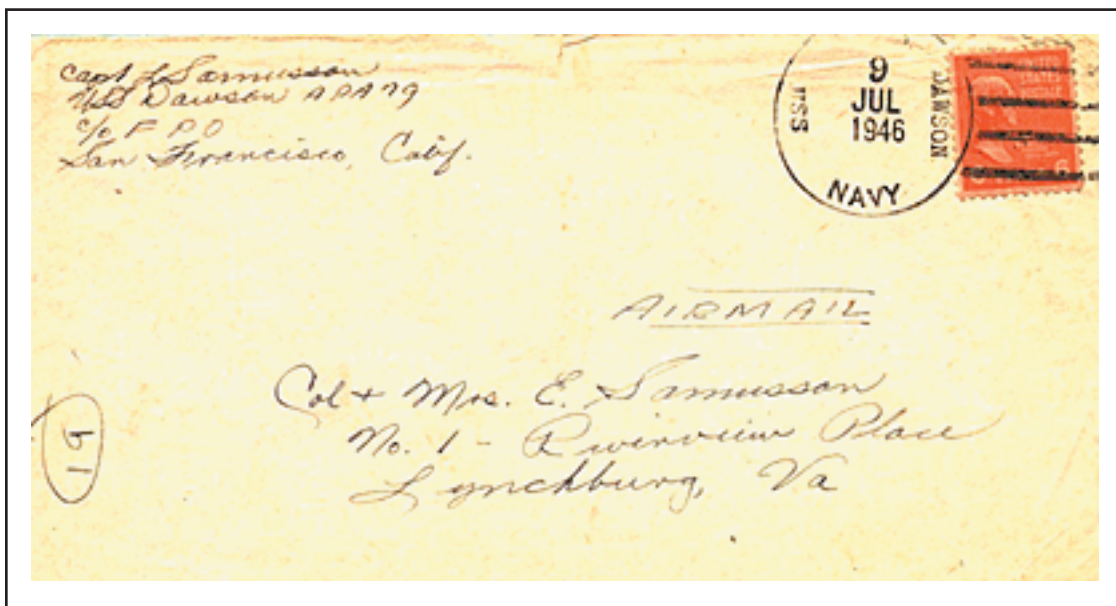 Capt L Samusson
USS Dawson APA 79
c/o F P O
San Francisco, Calif.
USS
9
JUL
1946
DAWSON
NAVY
AIRMAIL
Col + Mrs. E. Samusson
No. 1 - Riverview Place
Lynchburg, Va
19